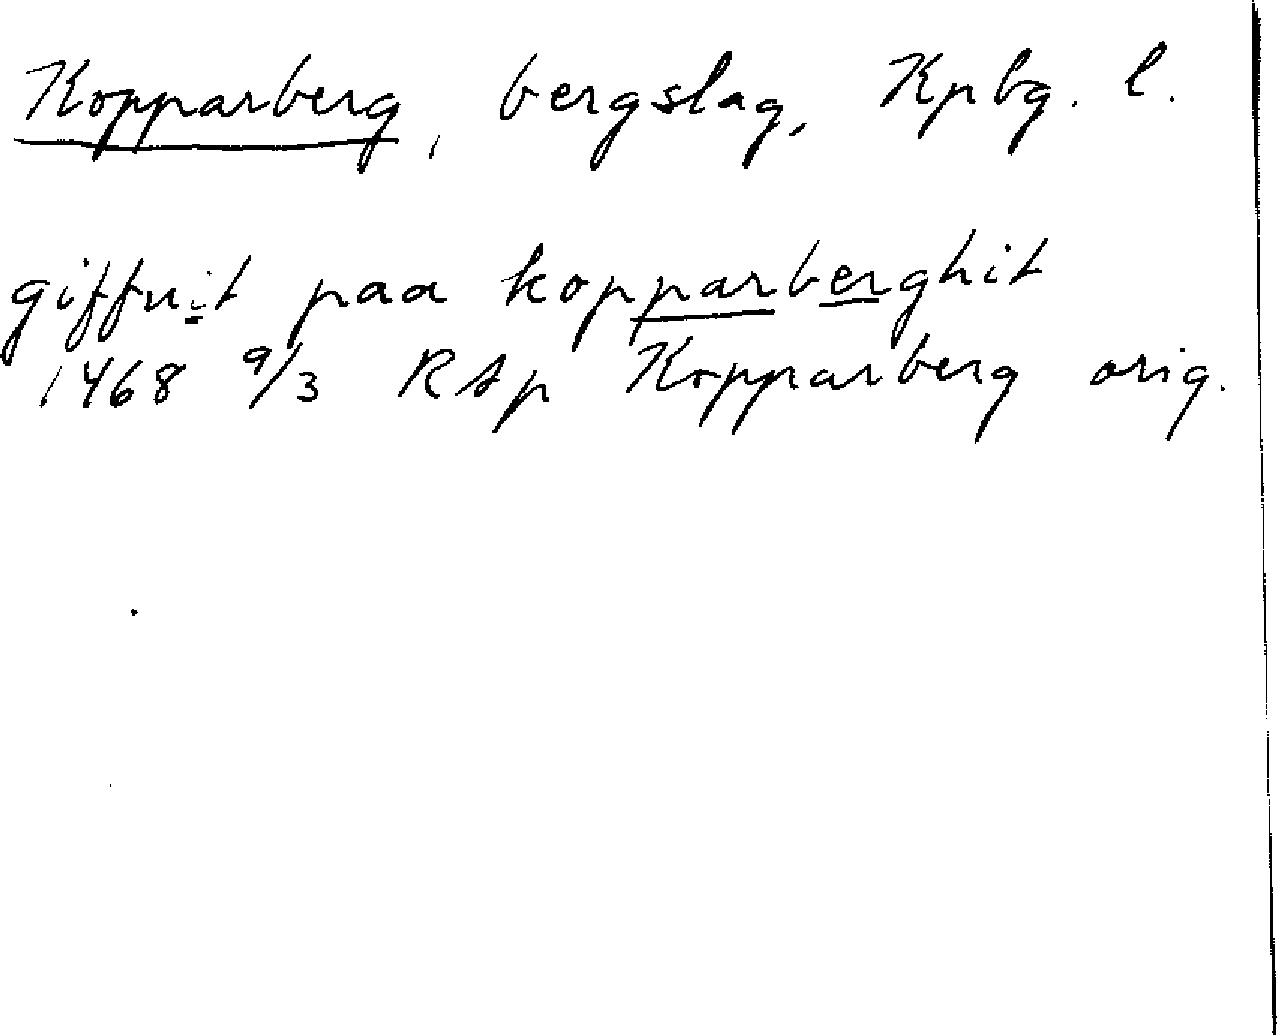 Kopparberg, bergslag, Kpbg. l.
giffuit paa kopparberghit
1468 9/3 RAp Kopparberg orig.